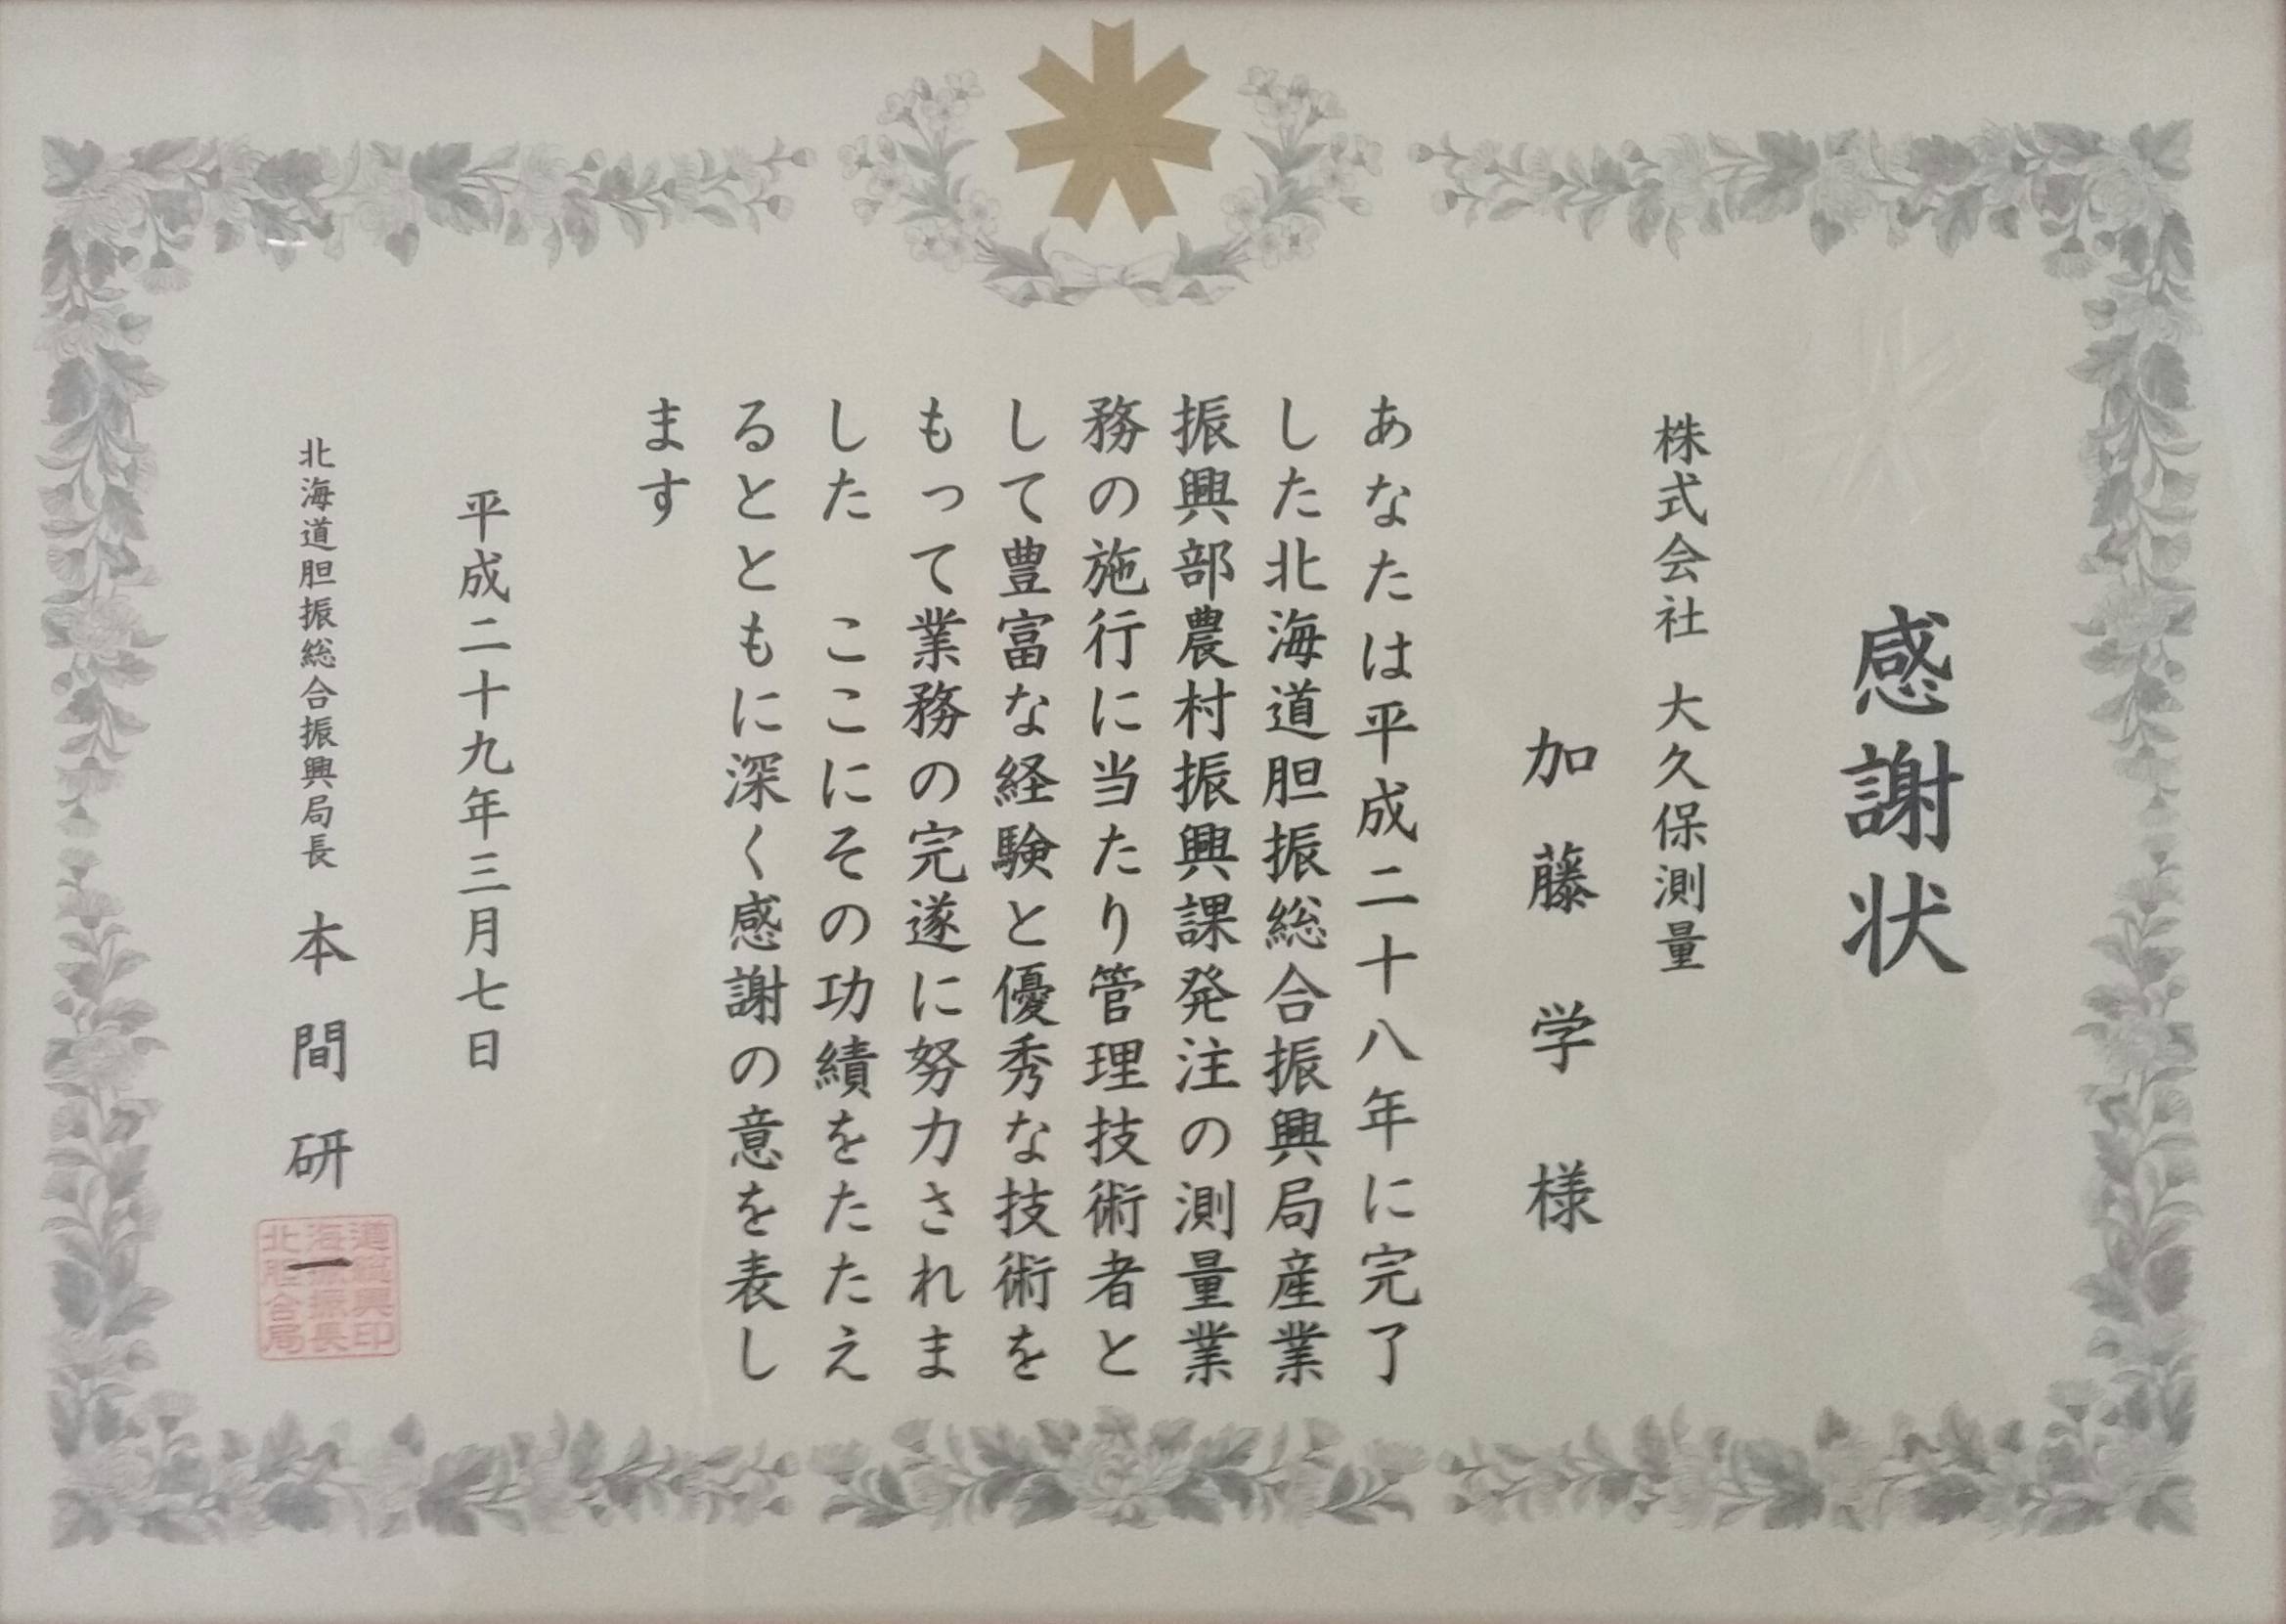 感謝状
株式会社 大久保測量
加藤 学 様
あなたは平成二十八年に完了
した北海道胆振総合振興局産業
振興部農村振興課発注の測量業
務の施行に当たり管理技術者と
して豊富な経験と優秀な技術を
もって業務の完遂に努力されま
した　ここにその功績をたたえ
るとともに深く感謝の意を表し
ます
平成二十九年三月七日
北海道胆振総合振興局長 本間研一